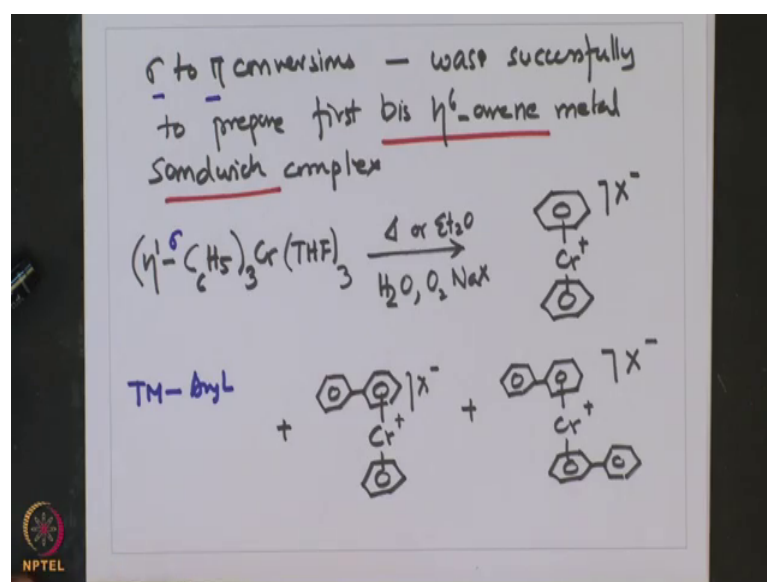 σ to π conversions — was successfully
to prepare first bis η⁶-arene metal
Sandwich complex
(η¹-C₆H₅)₃Cr(THF)₃ Δ or Et₂O
σ
H₂O, O₂ NaX
Cr⁺ ]X⁻
TM - Aryl
+ Cr⁺ ]X⁻ + Cr⁺ ]X⁻
NPTEL